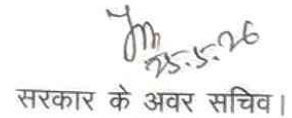 25.5.26
सरकार के अवर सचिव।